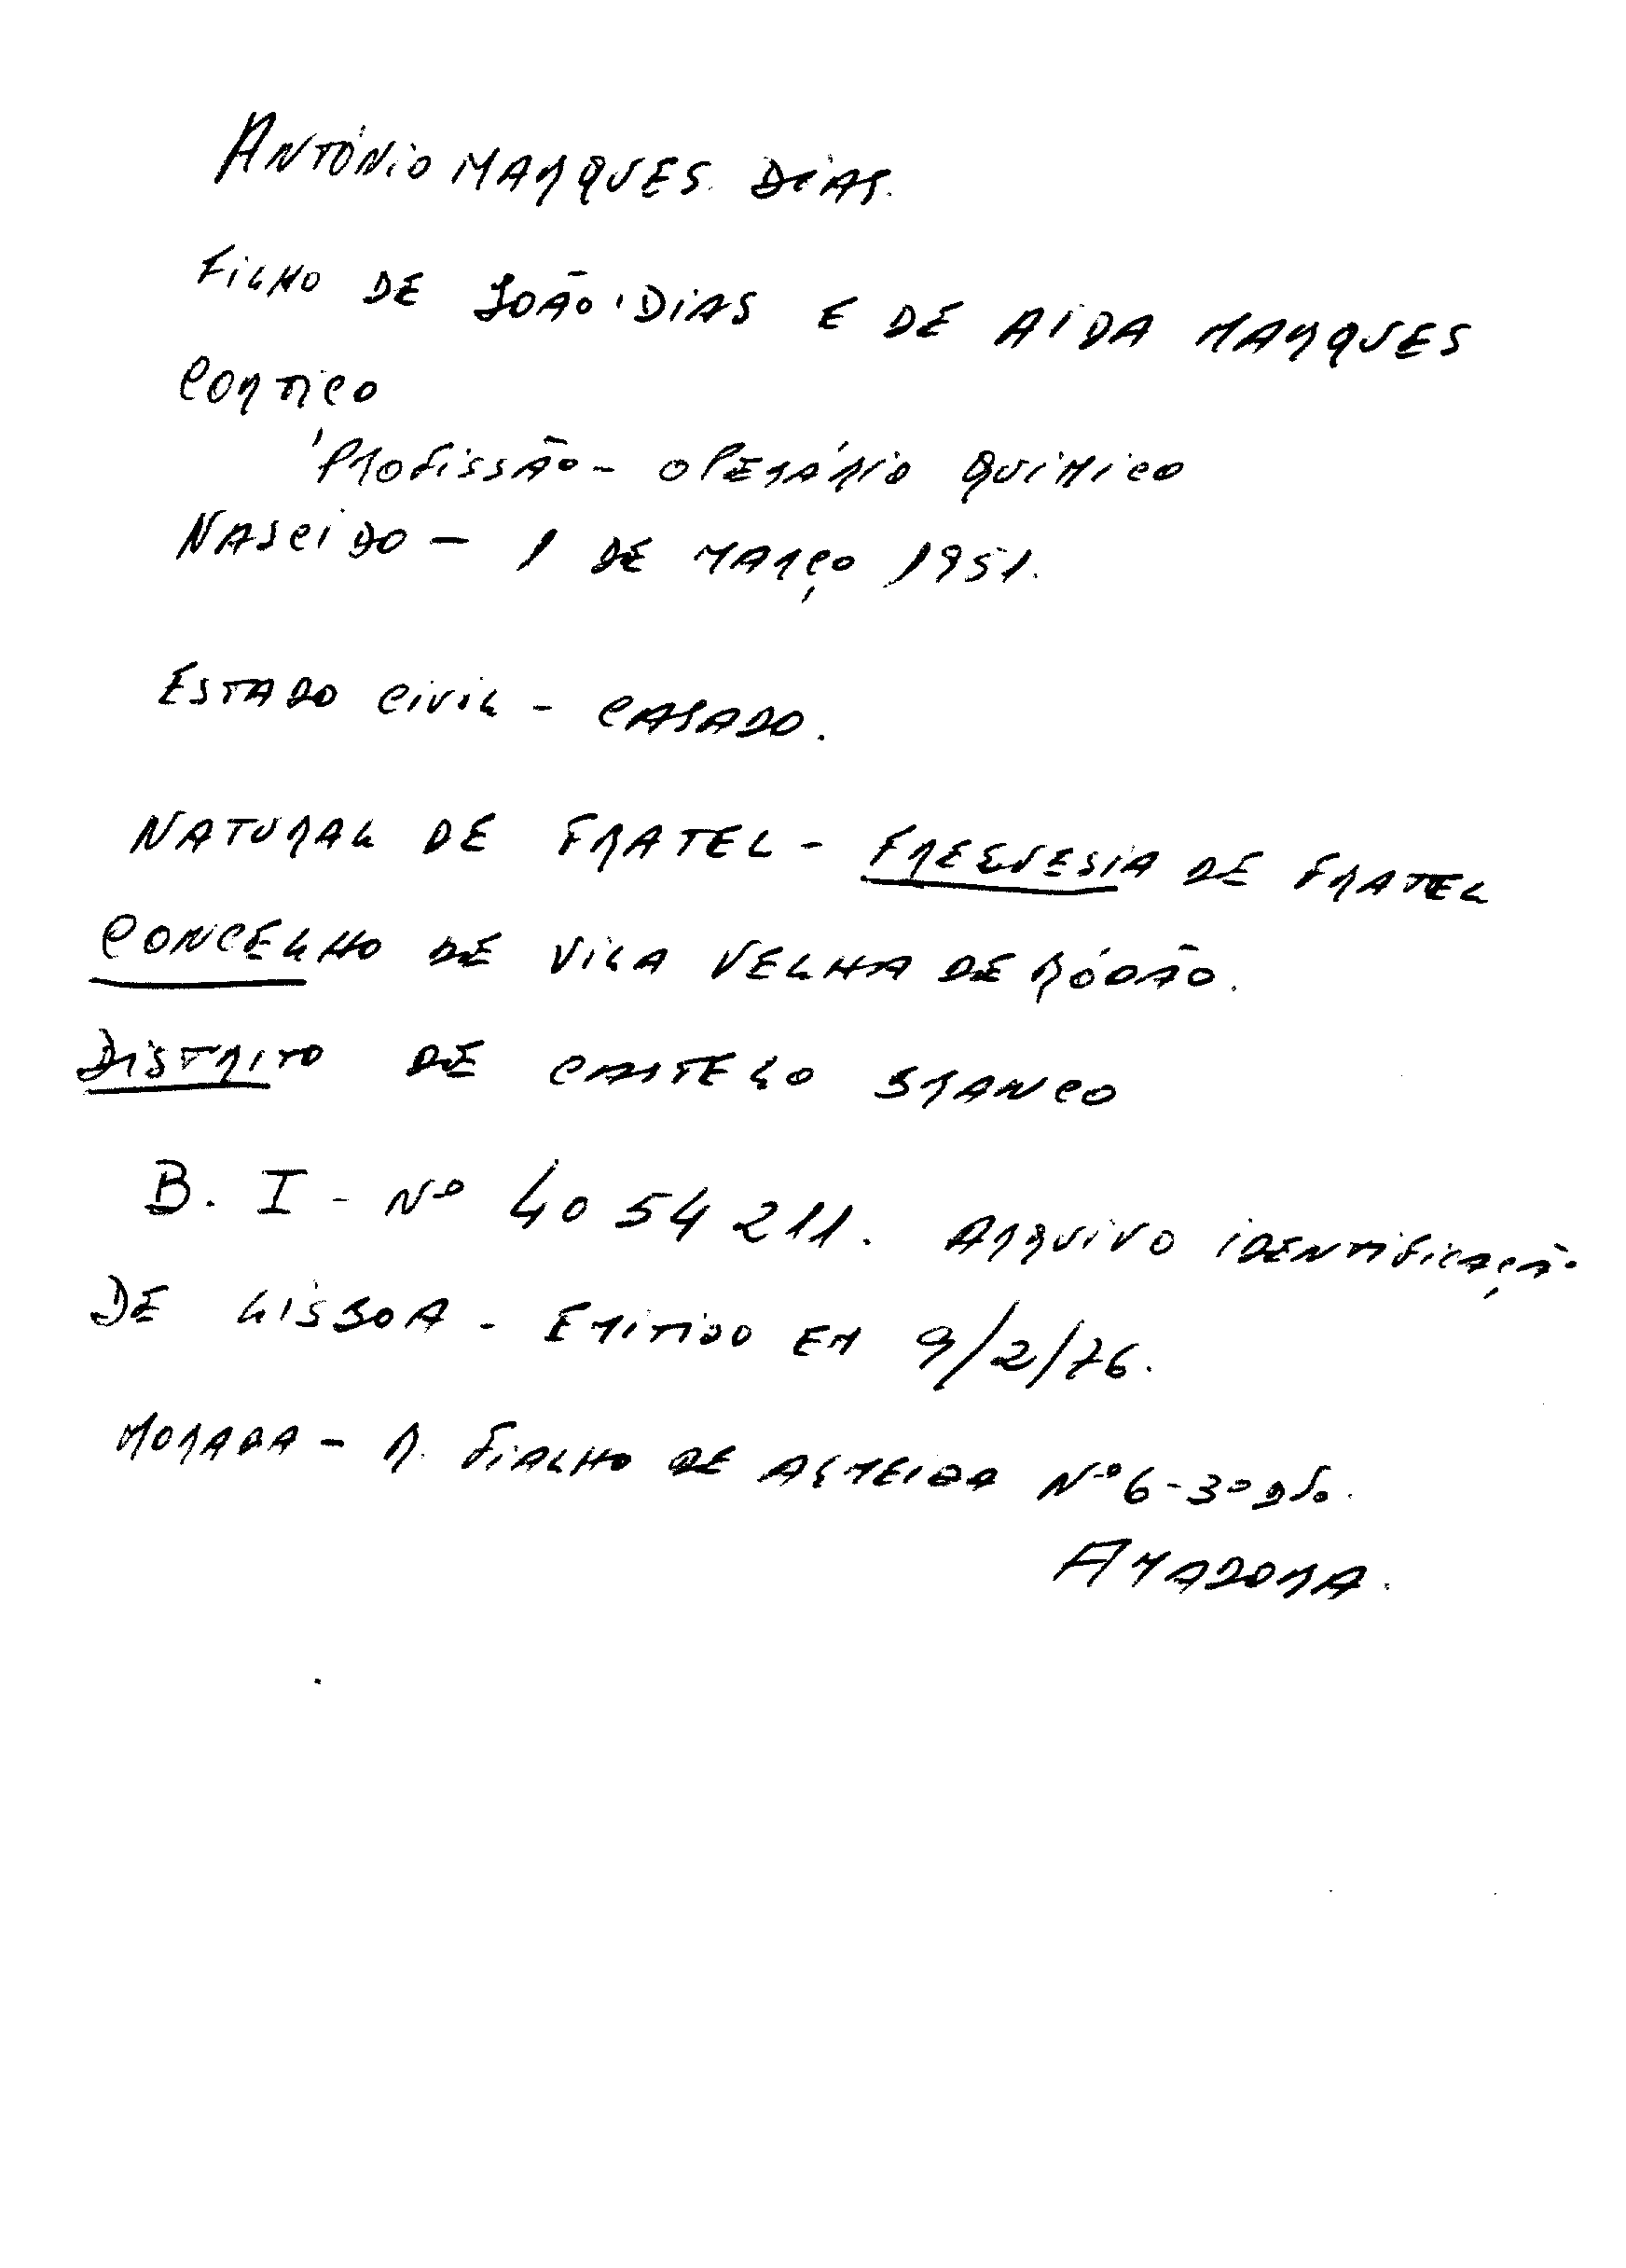 ANTÓNIO MARQUES DIAS.
FILHO DE JOÃO DIAS E DE AIDA MARQUES
CORTIÇO
PROFISSÃO - OPERÁRIO QUIMICO
NASCIDO - 1 DE MARÇO 1951.
ESTADO CIVIL - CASADO.
NATURAL DE FRATEL - FREGUESIA DE FRATEL
CONCELHO DE VILA VELHA DE RÓDÃO.
DISTRITO DE CASTELO BRANCO
B. I - Nº 4054211. ARQUIVO IDENTIFICAÇÃO
DE LISBOA - EMITIDO EM 9/2/76.
MORADA - R. FIALHO DE ALMEIDA Nº 6-3º DTO.
AMADORA.